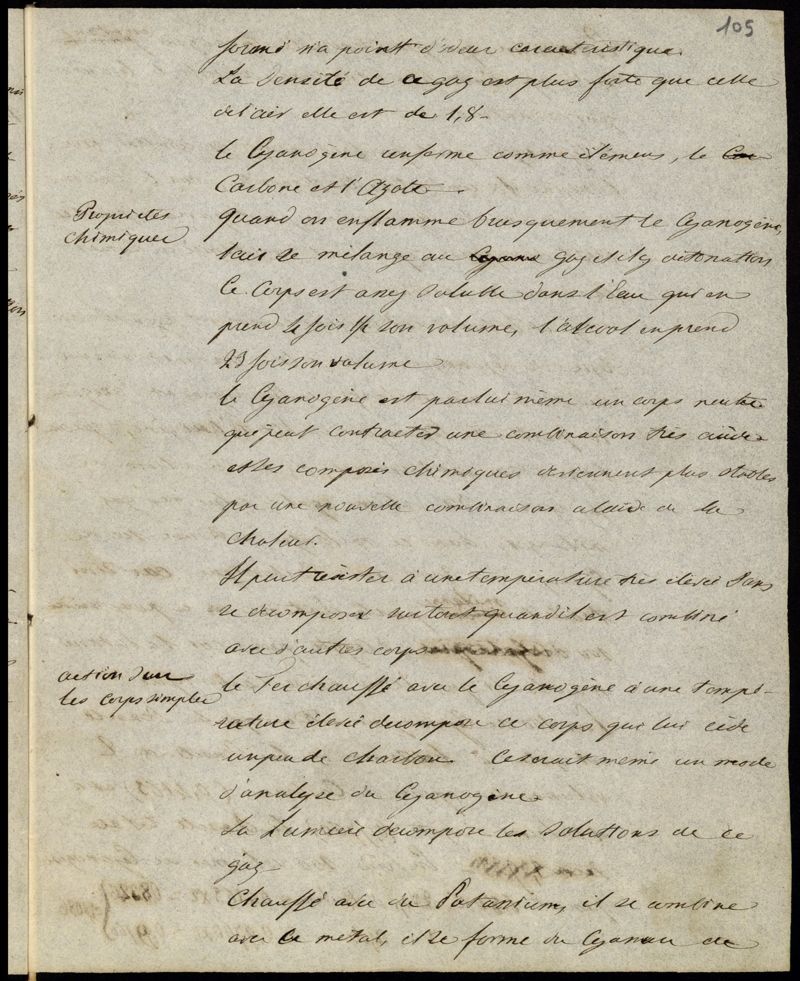 105
formé n'a point d'odeur caracteristique.
La Densité de ce gaz est plus forte que celle
de l'air elle est de 1,8
le Cyanogène renferme comme élémens, le Car
Carbone et l'Azote.
Propriétés
chimiques
quand on enflamme brusquement le Cyanogène,
l'air se mélange au Cyano gaz et il y a détonation
Ce Corps est assez soluble dans l'Eau qui en
prend 4 fois 1/2 son volume, l'alcool en prend
23 fois son volume
le Cyanogène est par lui même un corps neutre
qui peut contracter une combinaison très
et les composés chimiques deviennent plus stables
par une nouvelle combinaison à l'aide de la
chaleur.
Il peut résister à une température très élevée sans
se décomposer surtout quand il est combiné
avec d'autres corps
action sur
les corps simples
le Fer chauffé avec le Cyanogène à une tempé-
rature élevée décompose ce corps qui lui cède
un peu de charbon. Ce serait même un mode
d'analyse du Cyanogène.
La Lumière décompose les solutions de ce
gaz
Chauffé avec du Potassium, il se combine
avec ce métal, il se forme du Cyanure de